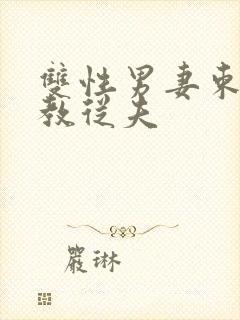 雙性男妻
教從夫
嚴琳